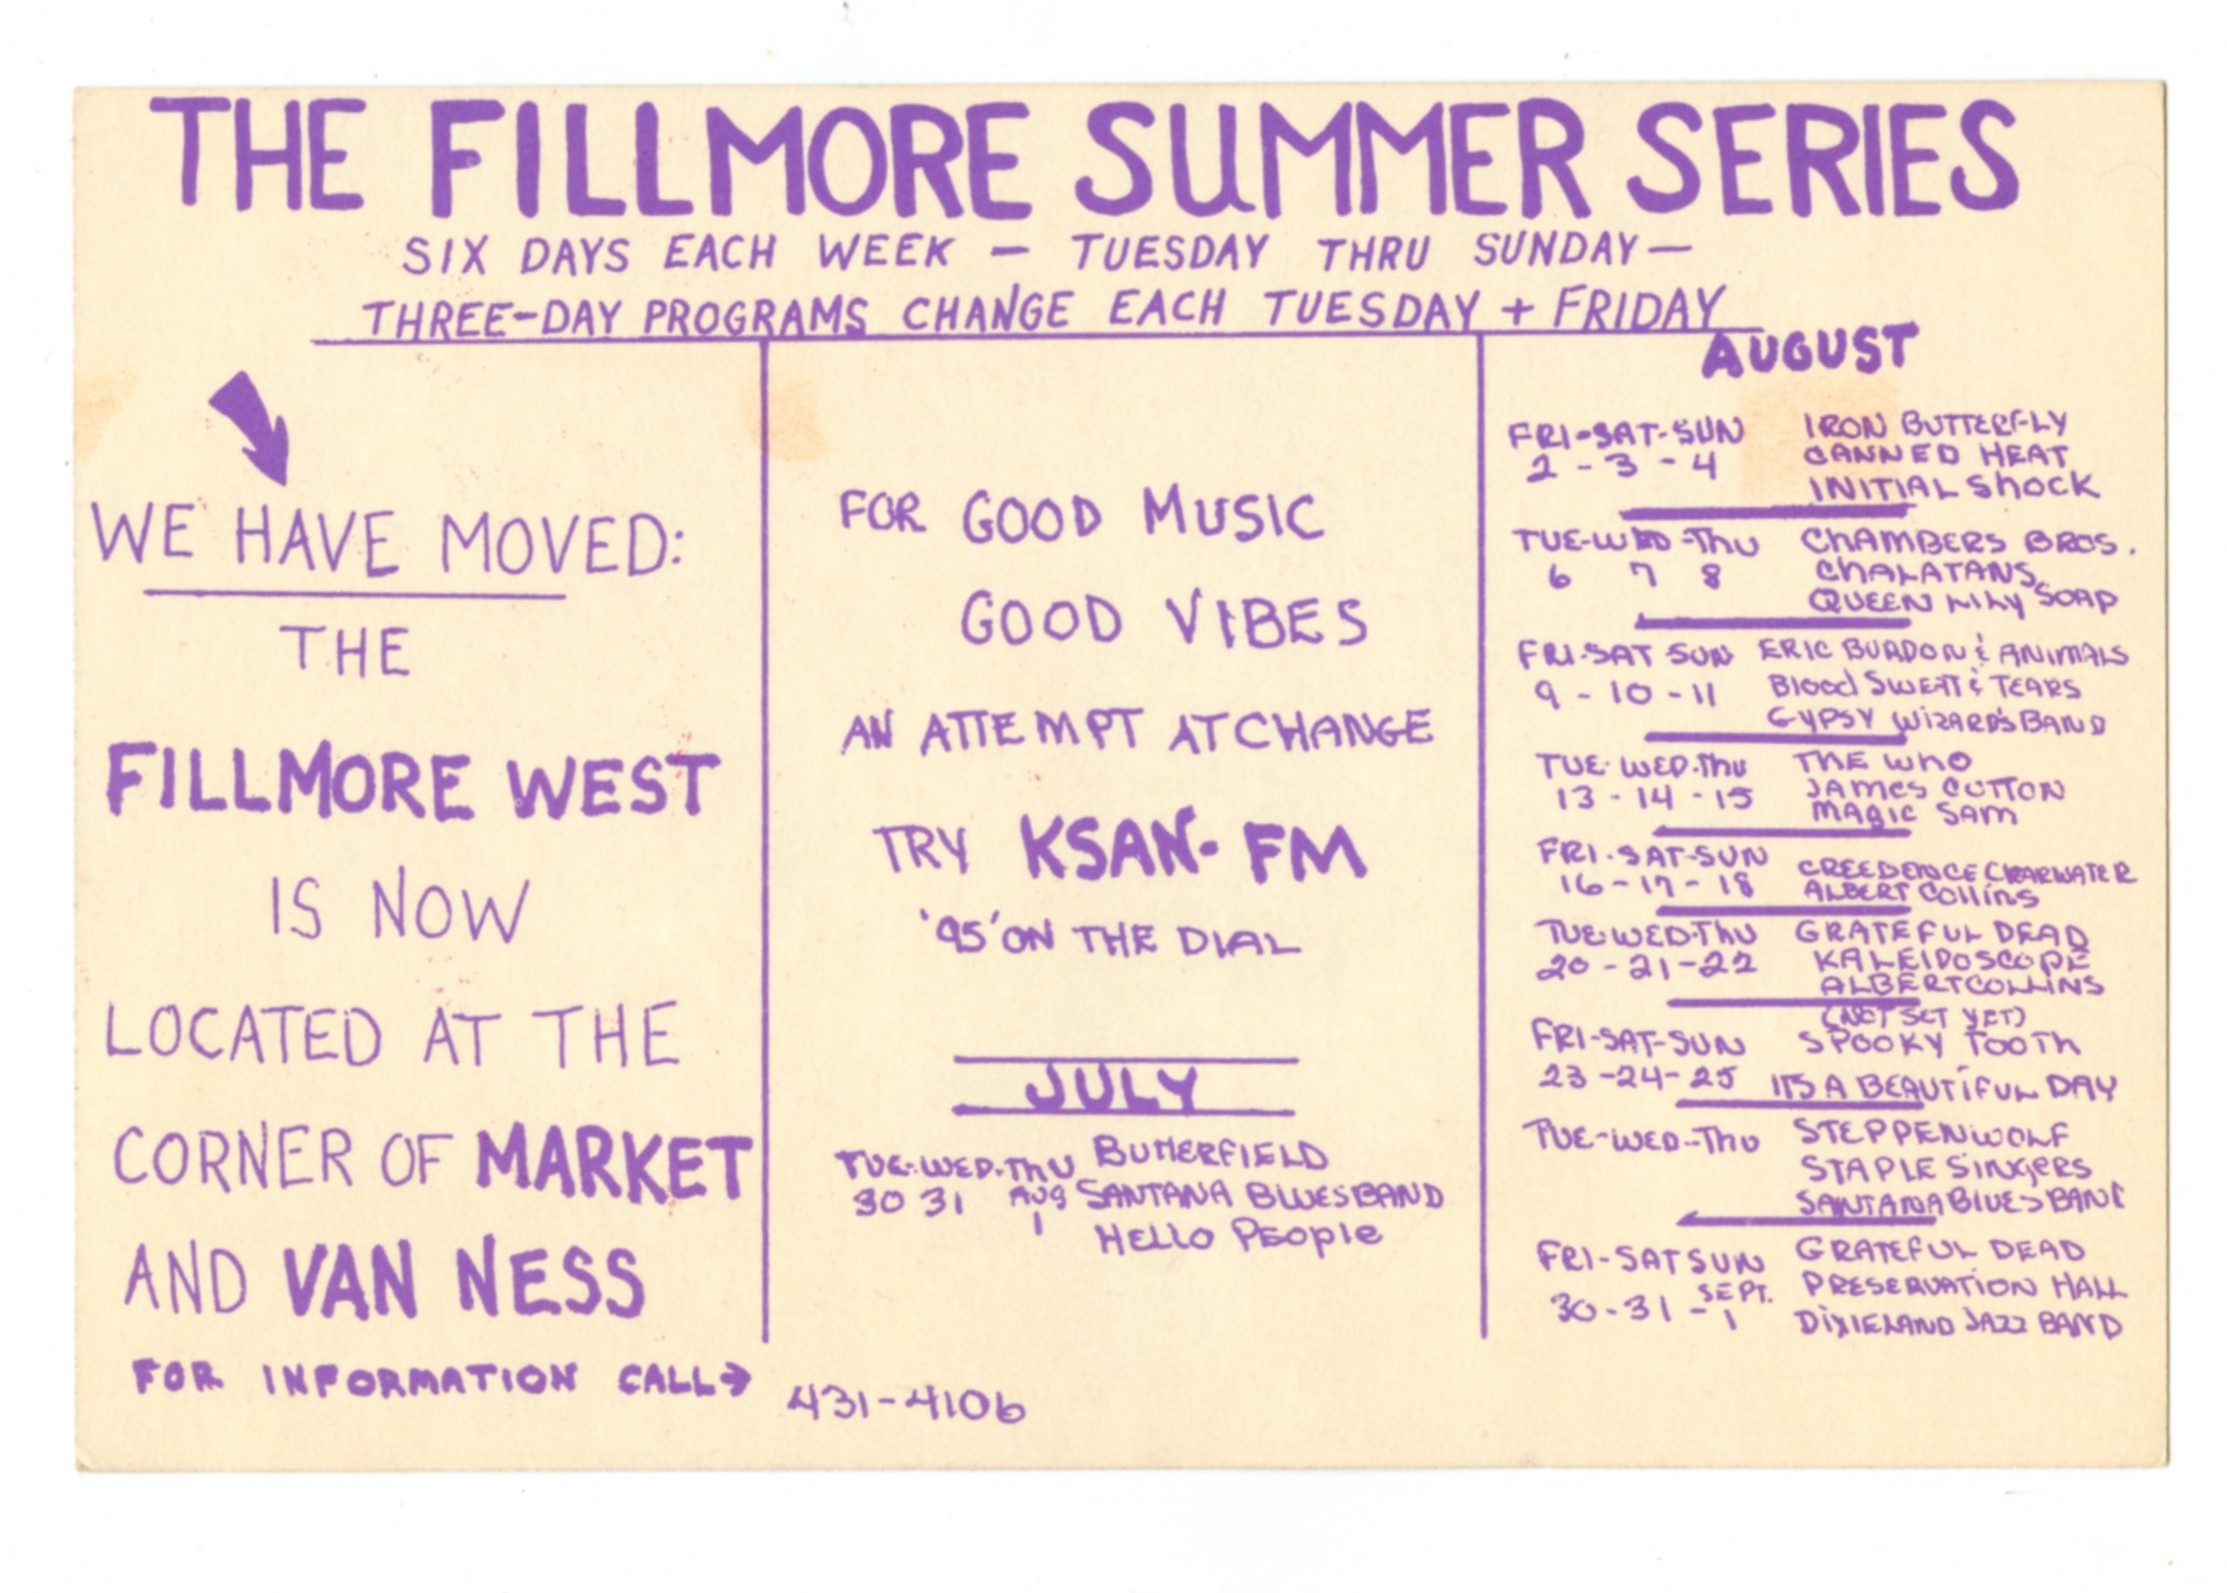 THE FILLMORE SUMMER SERIES
SIX DAYS EACH WEEK — TUESDAY THRU SUNDAY —
THREE-DAY PROGRAMS CHANGE EACH TUESDAY + FRIDAY
WE HAVE MOVED:
THE
FILLMORE WEST
IS NOW
LOCATED AT THE
CORNER OF MARKET
AND VAN NESS
FOR INFORMATION CALL→ 431-4106
FOR GOOD MUSIC
GOOD VIBES
AN ATTEMPT AT CHANGE
TRY KSAN-FM
'95' ON THE DIAL
JULY
TUE-WED-THU BUTTERFIELD
30 31 AUG SANTANA BLUES BAND
1 HELLO PEOPLE
AUGUST
FRI-SAT-SUN IRON BUTTERFLY
2 - 3 - 4 CANNED HEAT
INITIAL SHOCK
TUE-WED-THU CHAMBERS BROS.
6 7 8 CHALATANS
QUEEN LILY SOAP
FRI-SAT SUN ERIC BURDON & ANIMALS
9 - 10 - 11 BLOOD SWEAT & TEARS
GYPSY WIZARD'S BAND
TUE-WED-THU THE WHO
13 - 14 - 15 JAMES COTTON
MAGIC SAM
FRI-SAT-SUN CREEDENCE CLEARWATER
16 - 17 - 18 ALBERT COLLINS
TUE-WED-THU GRATEFUL DEAD
20 - 21 - 22 KALEIDOSCOPE
ALBERT COLLINS
(NOT SET YET)
FRI-SAT-SUN SPOOKY TOOTH
23 - 24 - 25 ITS A BEAUTIFUL DAY
TUE-WED-THU STEPPENWOLF
STAPLE SINGERS
SANTANA BLUES BAND
FRI-SAT SUN GRATEFUL DEAD
30 - 31 - SEPT. 1 PRESERVATION HALL
DIXIELAND JAZZ BAND